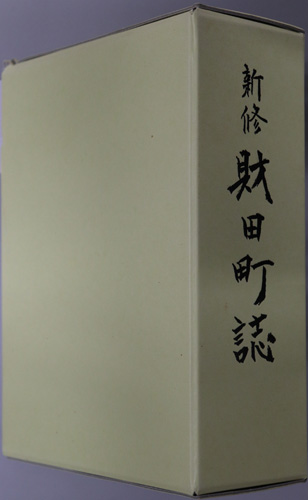 新修
財田町誌